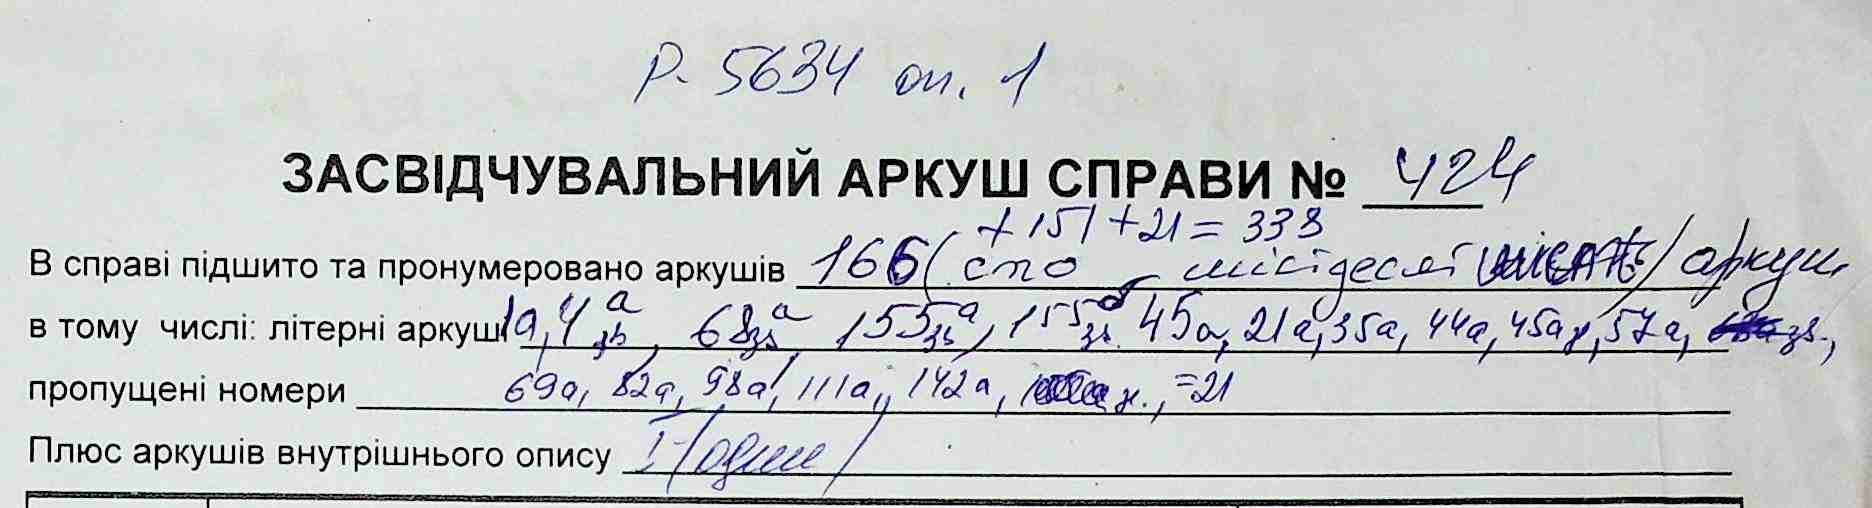 Р. 5634 оп. 1
ЗАСВІДЧУВАЛЬНИЙ АРКУШ СПРАВИ № 424
+ 151 + 21 = 338
В справі підшито та пронумеровано аркушів 166 (сто шістдесят шість) аркуш
в тому числі: літерні аркуші 1а, 4а зв, 68а зв, 155а зв, 155 зв. 45а, 21а, 35а, 44а, 45а, 57а, зв.,
пропущені номери 69а, 82а, 98а, 111а, 142а, = 21
Плюс аркушів внутрішнього опису 1 /один/